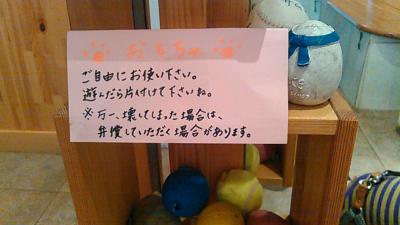 おもちゃ
ご自由にお使い下さい。
遊んだら片付けて下さいね。
※万一、壊してしまった場合は、
弁償していただく場合があります。